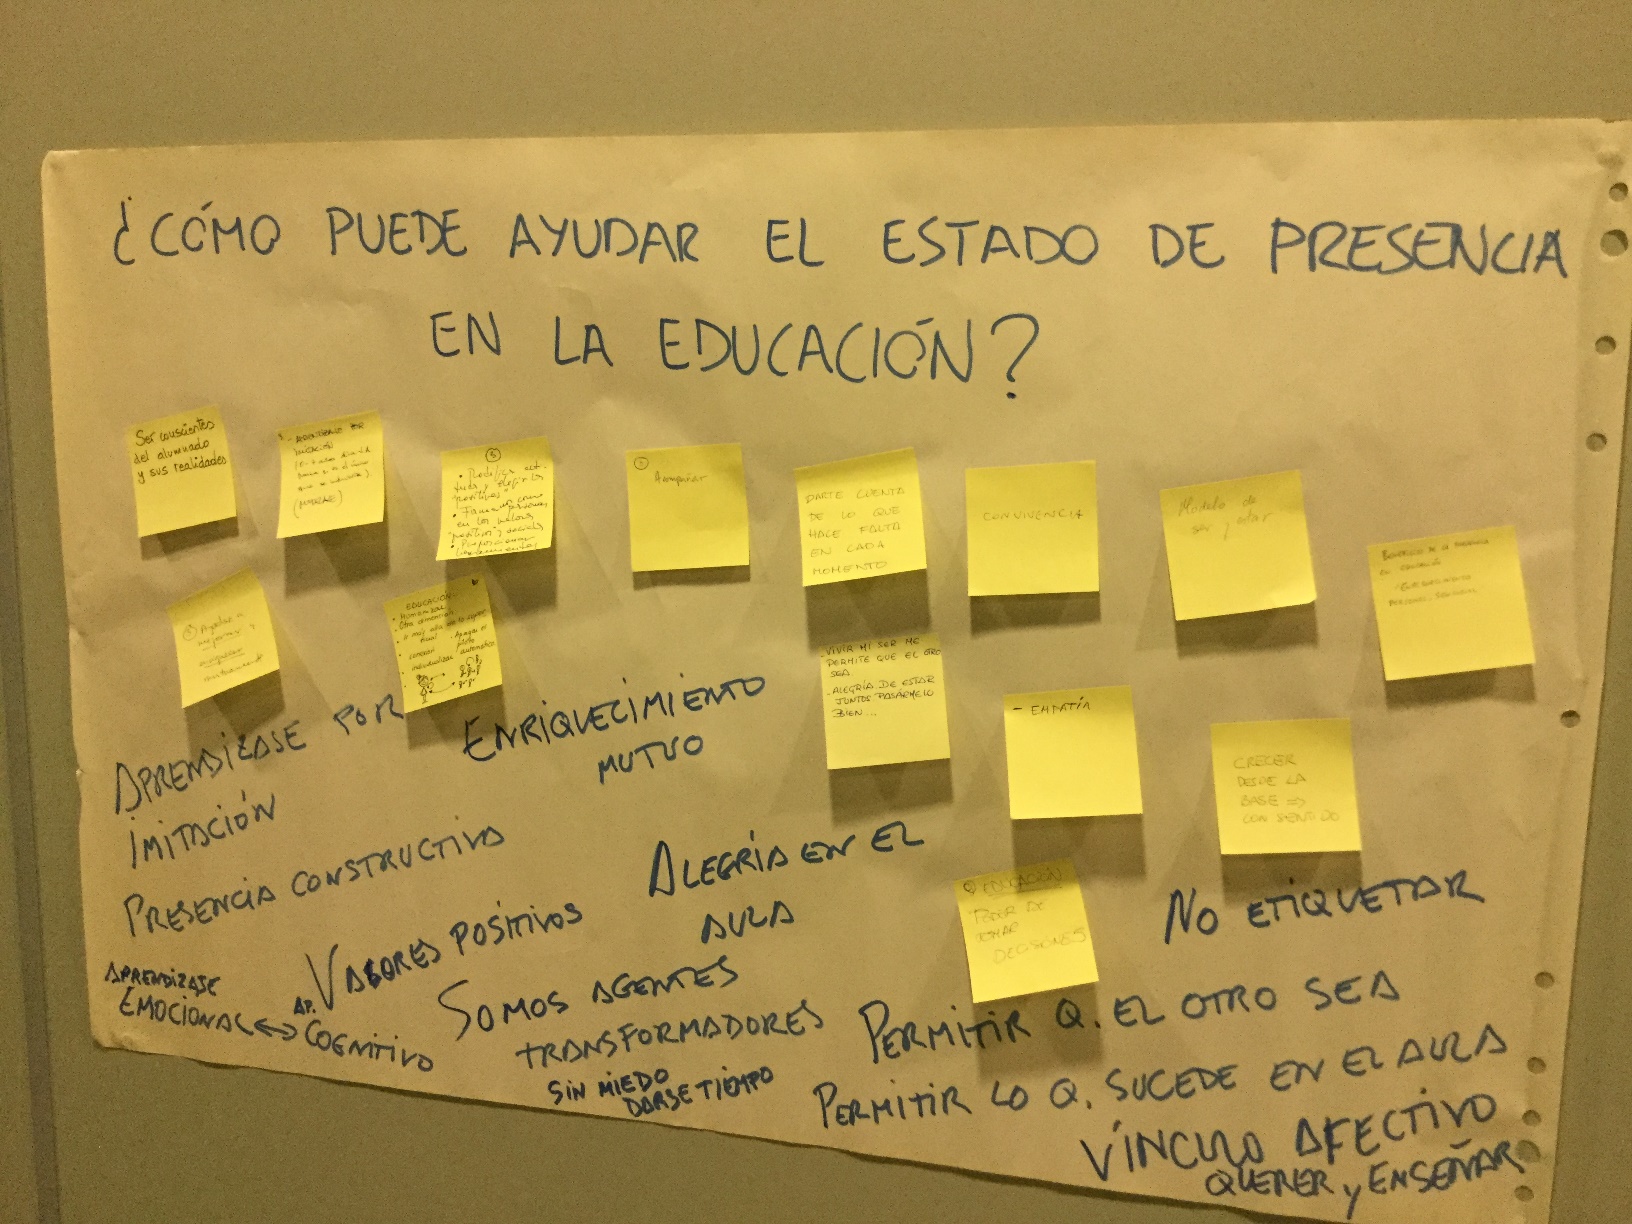 ¿CÓMO PUEDE AYUDAR EL ESTADO DE PRESENCIA
EN LA EDUCACIÓN?
Ser conscientes
del alumnado
y sus realidades
- APRENDIZAJE POR
IMITACIÓN
③
positivas"
en los valores
①
Acompañar
DARTE CUENTA
DE LO QUE
HACE FALTA
EN CADA
MOMENTO
CONVIVENCIA
Modelo de
ser y estar
BENEFICIOS DE LA PRESENCIA
EN EDUCACIÓN
Ayudar a
mejorar y
EDUCACIÓN
• Humanizar
• Otra dimensión
Apagar el
piloto
automático
individualizar
- VIVIR MI SER ME
PERMITE QUE EL OTRO
SEA.
- ALEGRÍA DE ESTAR
JUNTOS PASÁRMELO
BIEN...
- EMPATÍA
CRECER
DESDE LA
BASE =>
CON SENTIDO
EDUCACIÓN
PODER DE
TOMAR
DECISIONES
APRENDIZASE POR
IMITACIÓN
ENRIQUECIMIENTO
MUTUO
PRESENCIA CONSTRUCTIVA
ALEGRÍA EN EL
AULA
VALORES POSITIVOS
NO ETIQUETAR
APRENDIZASE
EMOCIONAL <-> AP.
COGNITIVO
SOMOS AGENTES
TRANSFORMADORES
SIN MIEDO
DARSE TIEMPO
PERMITIR Q. EL OTRO SEA
PERMITIR LO Q. SUCEDE EN EL AULA
VÍNCULO AFECTIVO
QUERER y ENSEÑAR